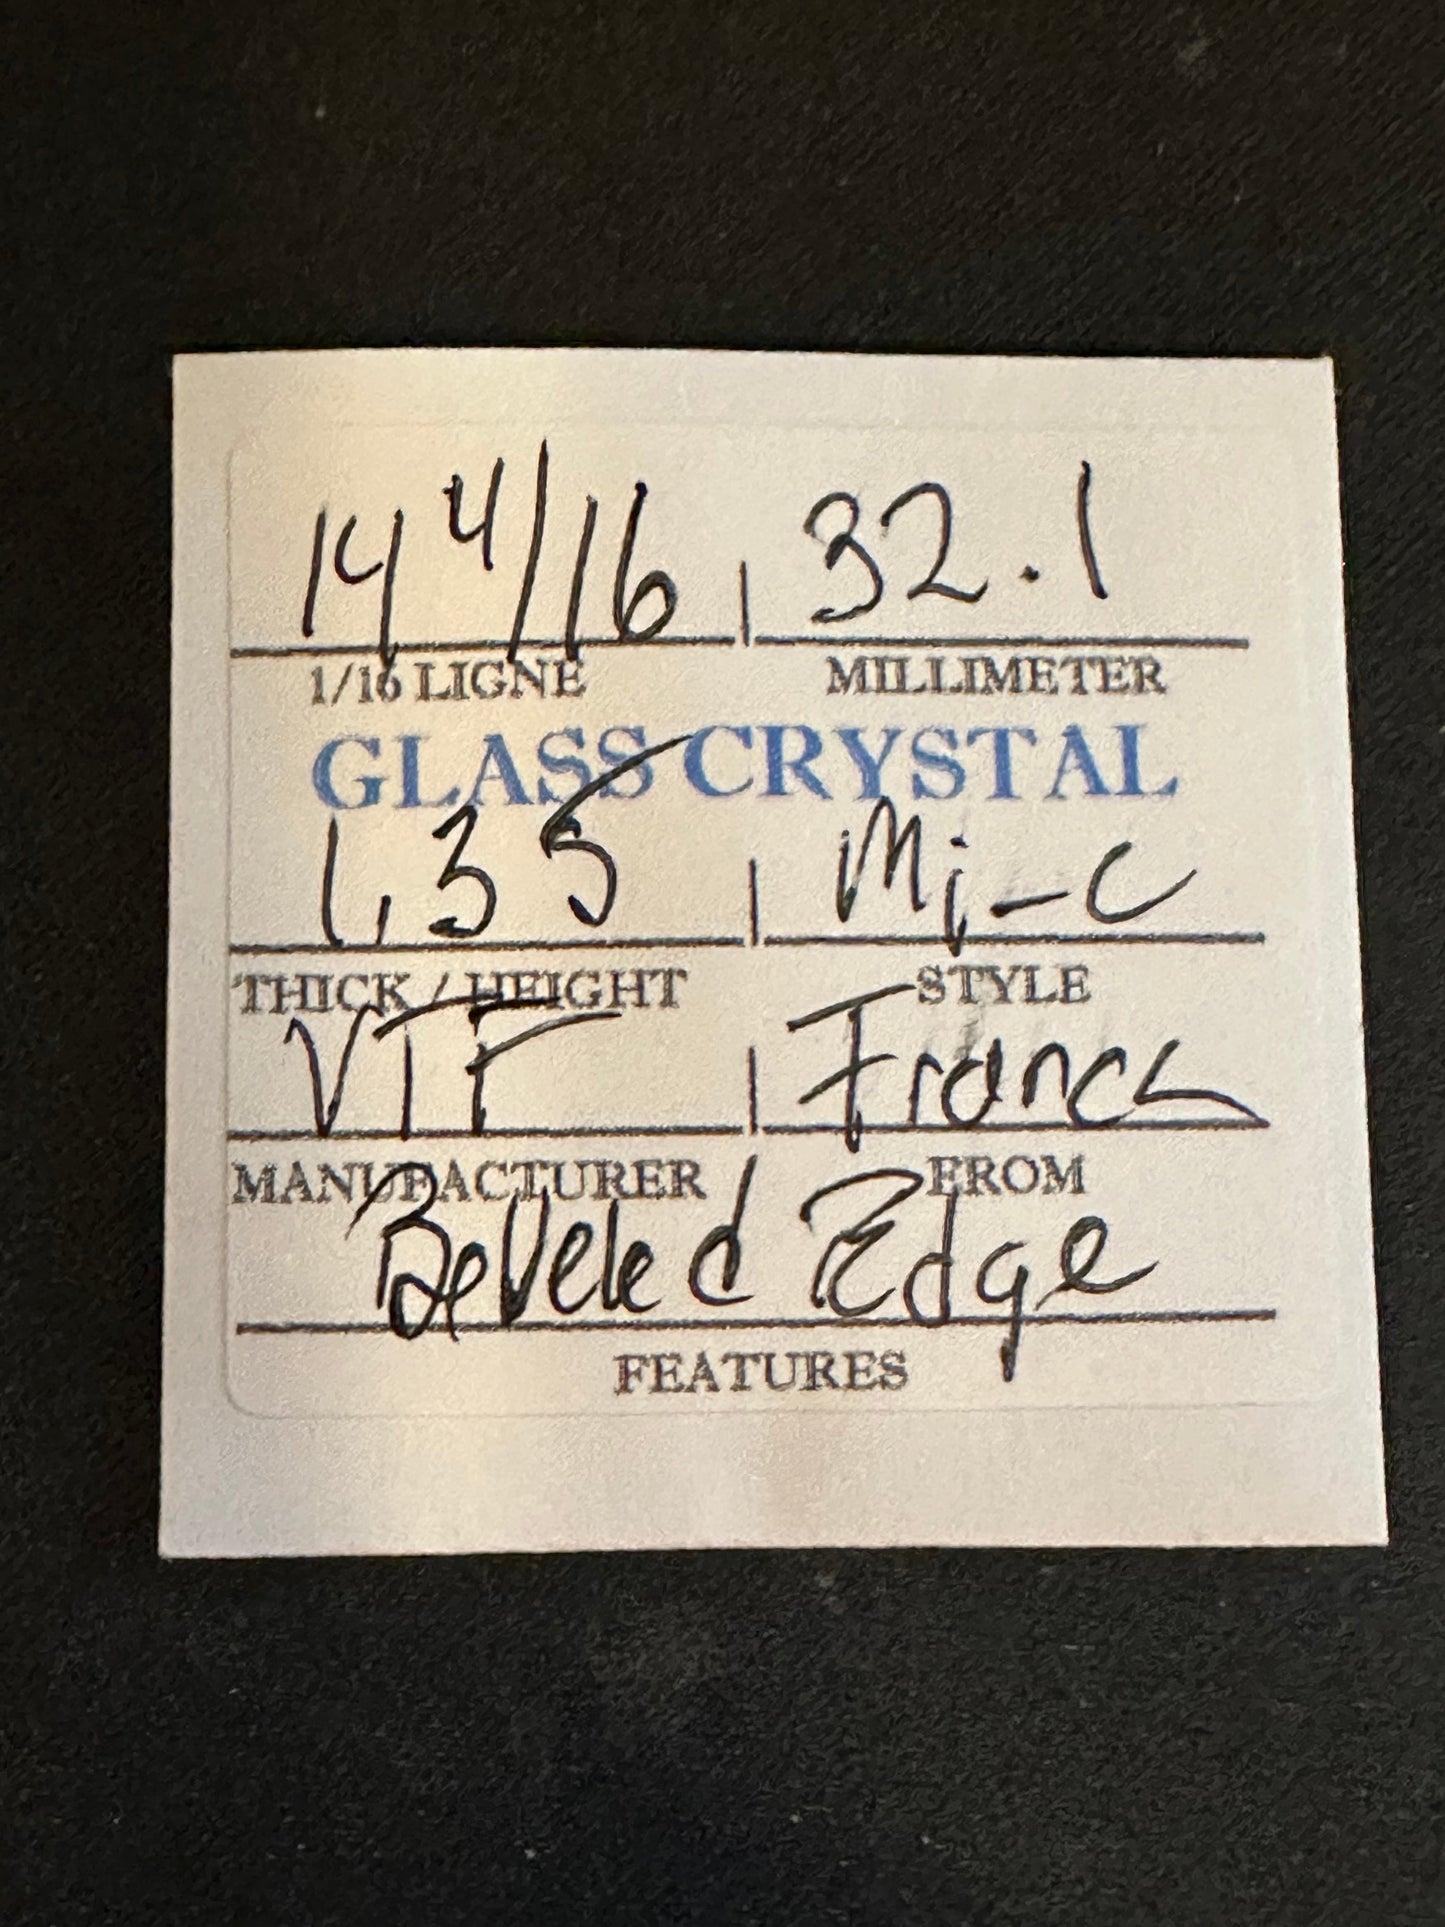 14 4/16 32.1
1/16 LIGNE MILLIMETER
GLASS CRYSTAL
1.35 Mi-C
THICK / HEIGHT STYLE
VTF France
MANUFACTURER FROM
Beveled Edge
FEATURES